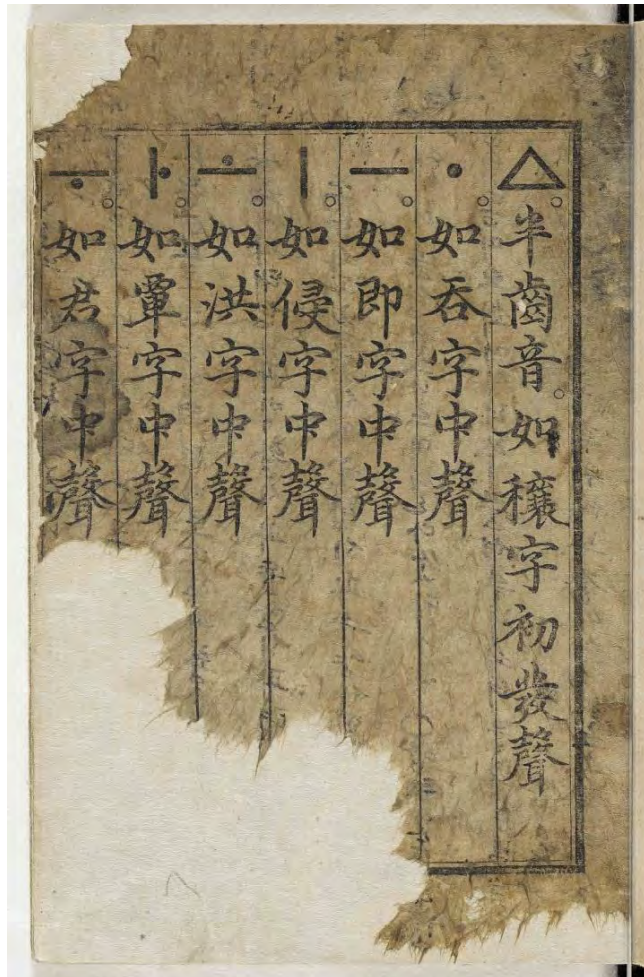 ㅿ。半齒音。如穰字初發聲
ㆍ。如吞字中聲
ㅡ。如即字中聲
ㅣ。如侵字中聲
ㅗ。如洪字中聲
ㅏ。如覃字中聲
ㅜ。如君字中聲